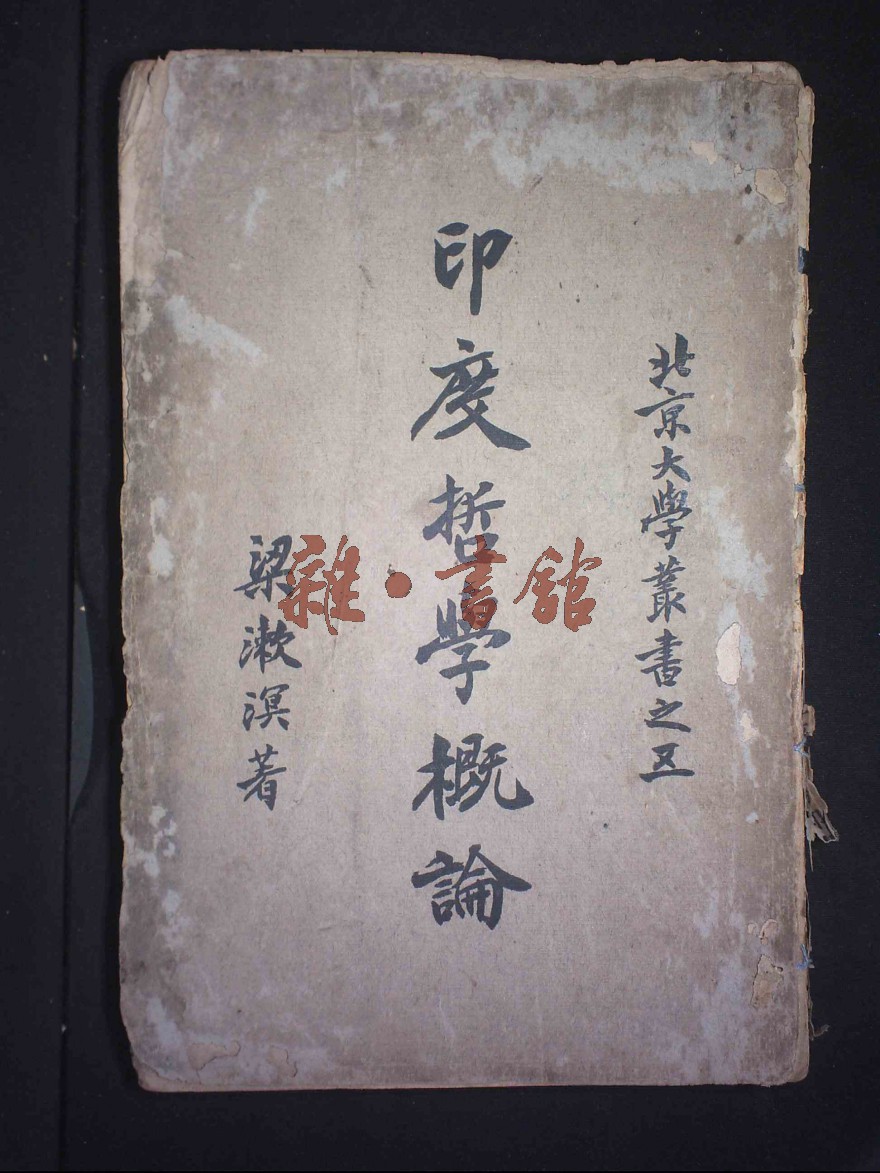 北京大學叢書之五
印度哲學概論
梁漱溟著
雜·書館